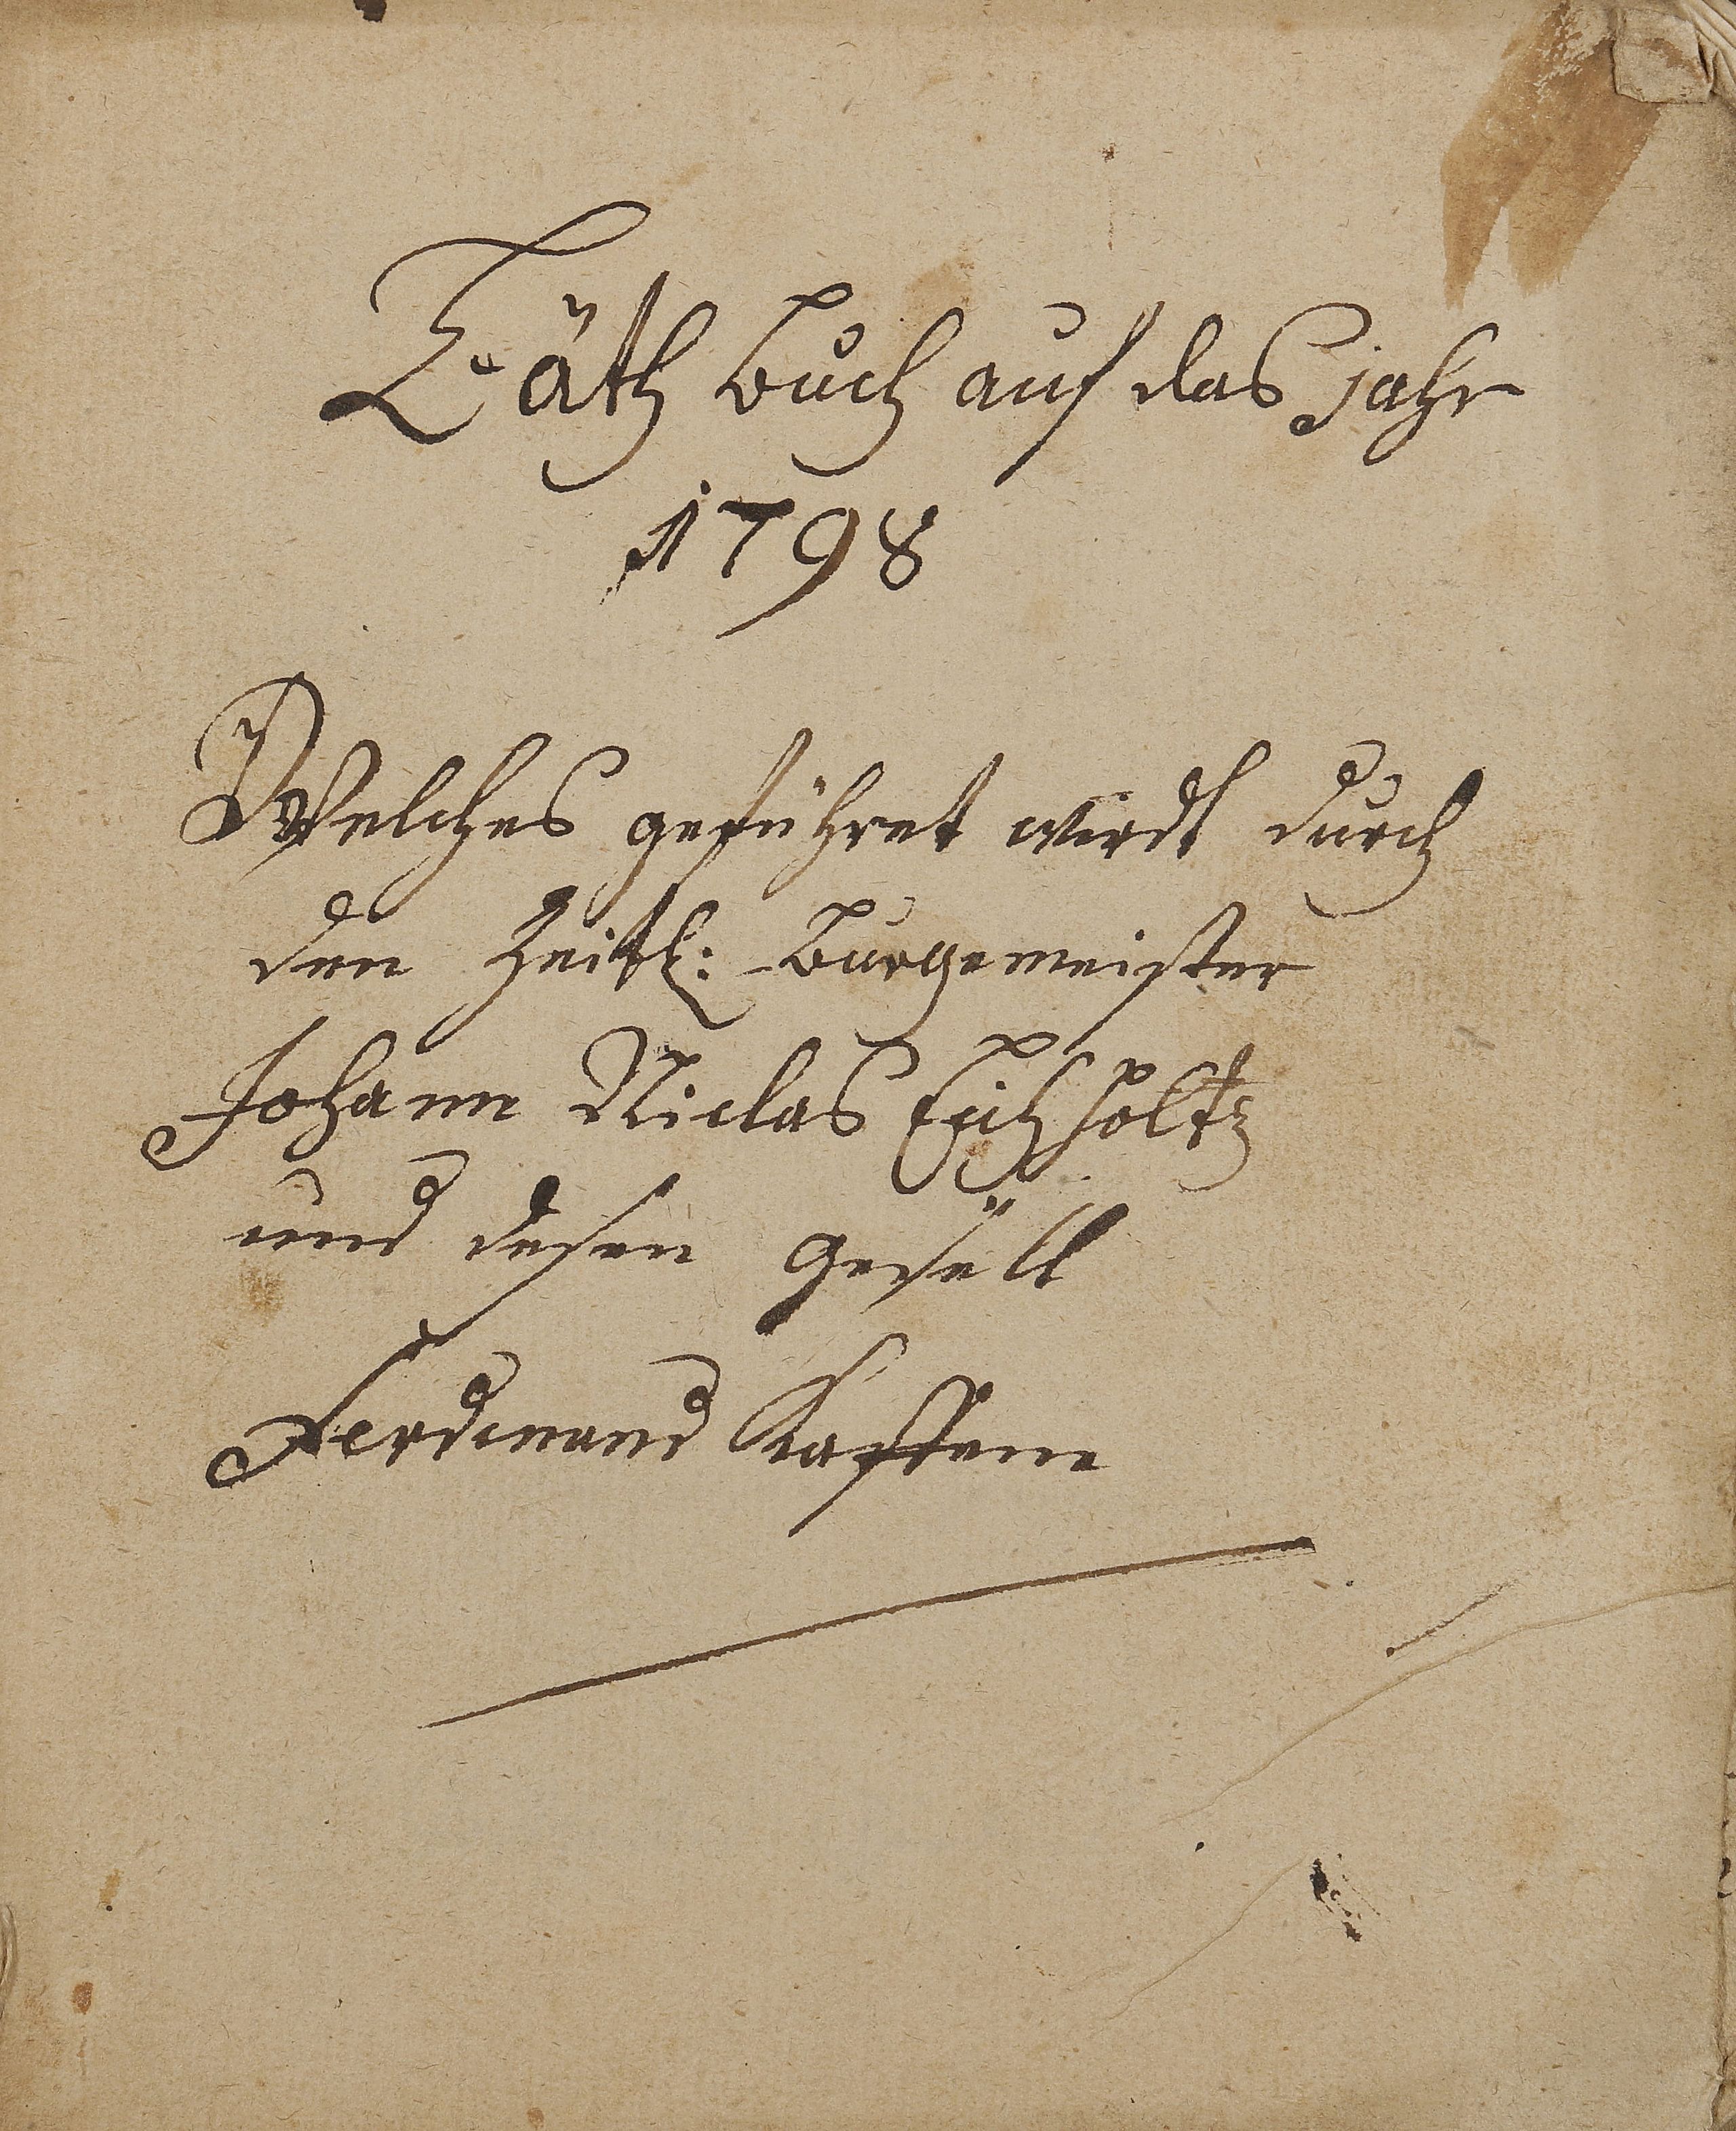 Räth buch auf das jahr
1798
Welches geführet wirdt durch
den Zeitl: burgemeister
Johann Niclas Eichholtz
und desen gesell
Ferdinand